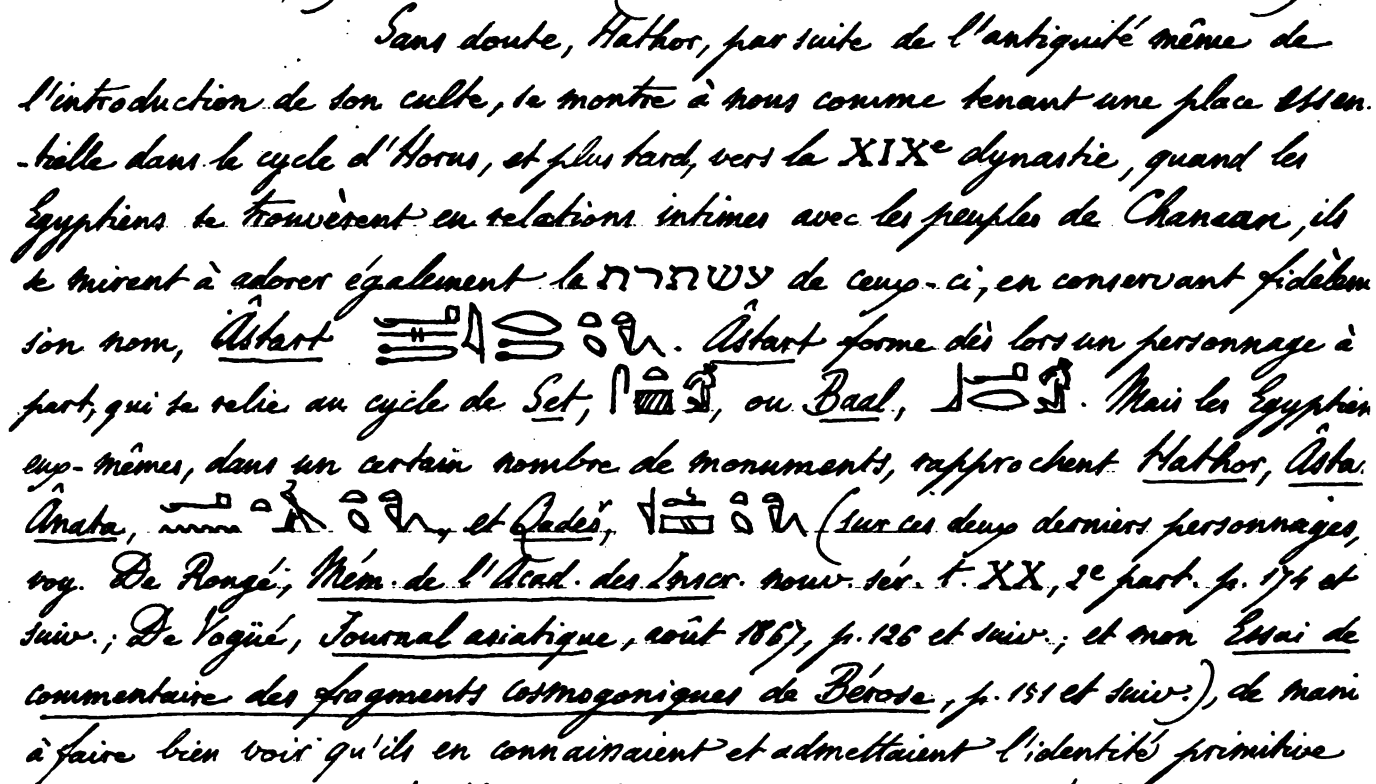 Sans doute, Hathor, par suite de l'antiquité même de
l'introduction de son culte, se montre à nous comme tenant une place essen-
-tielle dans le cycle d'Horus, et plus tard, vers la XIXe dynastie, quand les
Egyptiens se trouvèrent en relations intimes avec les peuples de Chanaan, ils
se mirent à adorer également la עשתרת de ceux-ci, en conservant fidèlem
son nom, Âstart . Âstart forme dès lors un personnage à
part, qui se relie au cycle de Set, , ou Baal, . Mais les Egyptien
eux-mêmes, dans un certain nombre de monuments, rapprochent Hathor, Âsta
Ânata, , et Qadeš, (sur ces deux derniers personnages,
voy. De Rougé, Mém. de l'Acad. des Inscr. nouv. sér. t. XX, 2e part. p. 174 et
suiv.; De Vogüé, Journal asiatique, août 1867, p. 126 et suiv.; et mon Essai de
commentaire des fragments cosmogoniques de Bérose, p. 151 et suiv.), de mani
à faire bien voir qu'ils en connaissaient et admettaient l'identité primitive